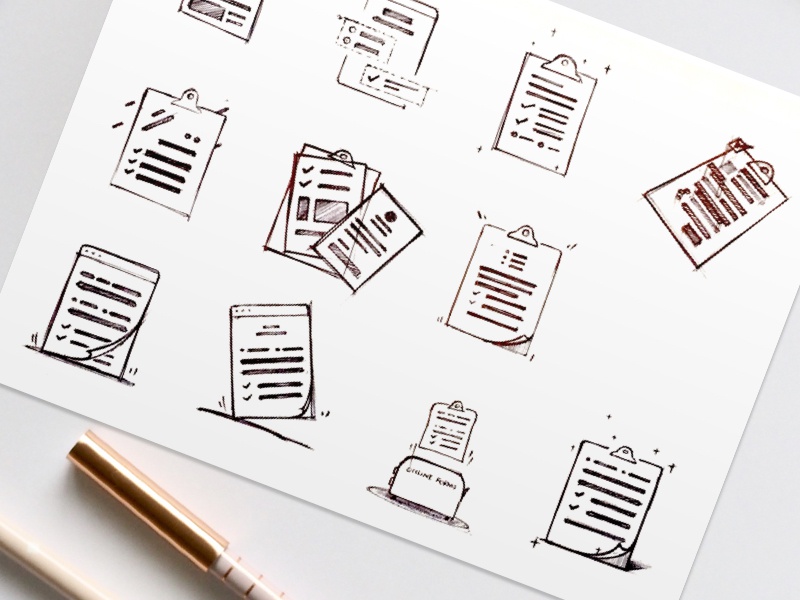 OFFLINE FORMS